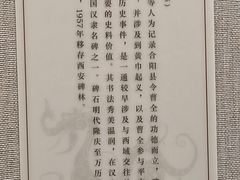 ）
等人为记录合阳县令曹全的功德而立，
，并涉及到黄巾起义，以及曹全参与平
历史事件，是一通较早涉及与西域交往
要的史料价值。其书法秀美温润，在汉
国汉隶名碑之一。碑石明代隆庆至万历
，1957年移存西安碑林。